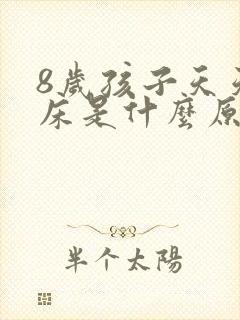 8歲孩子天天
床是什麼原
半个太陽